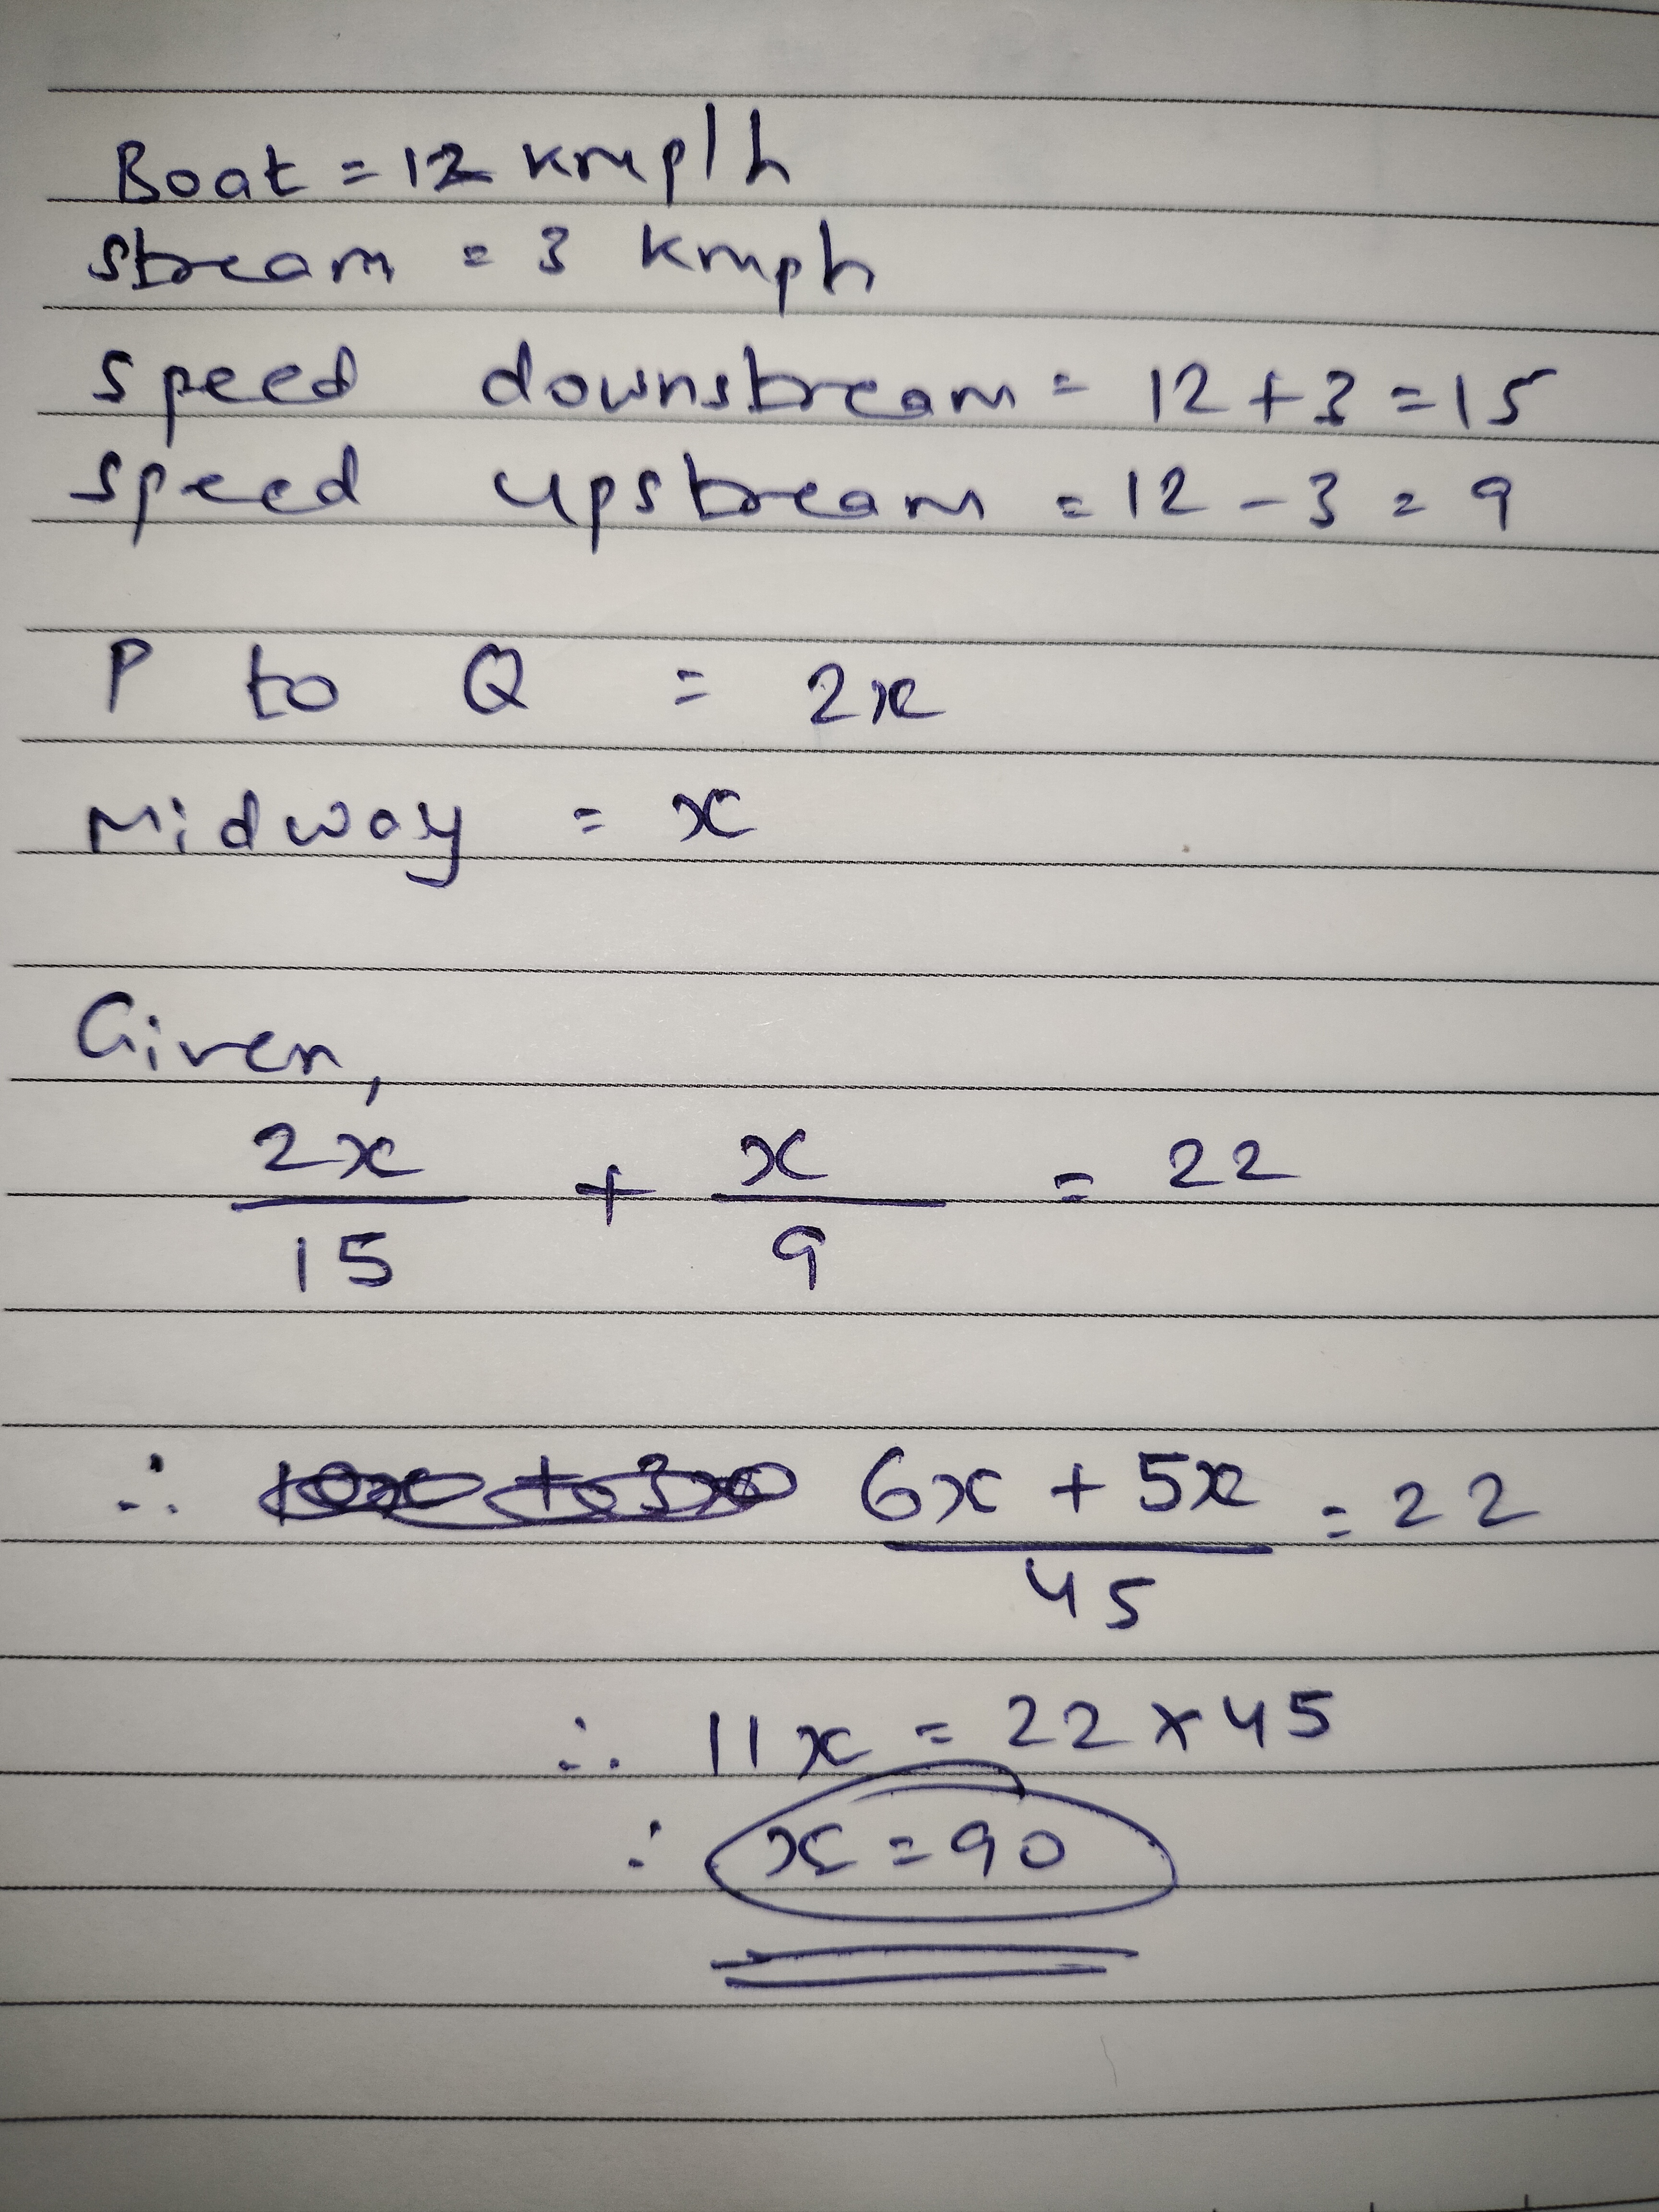 Boat = 12 kmp/h
stream = 3 kmph
speed downstream = 12 + 3 = 15
speed upstream = 12 - 3 = 9
P to Q = 2x
Midway = x
Given,
2x/15 + x/9 = 22
∴ 6x + 5x / 45 = 22
∴ 11x = 22 × 45
∴ x = 90